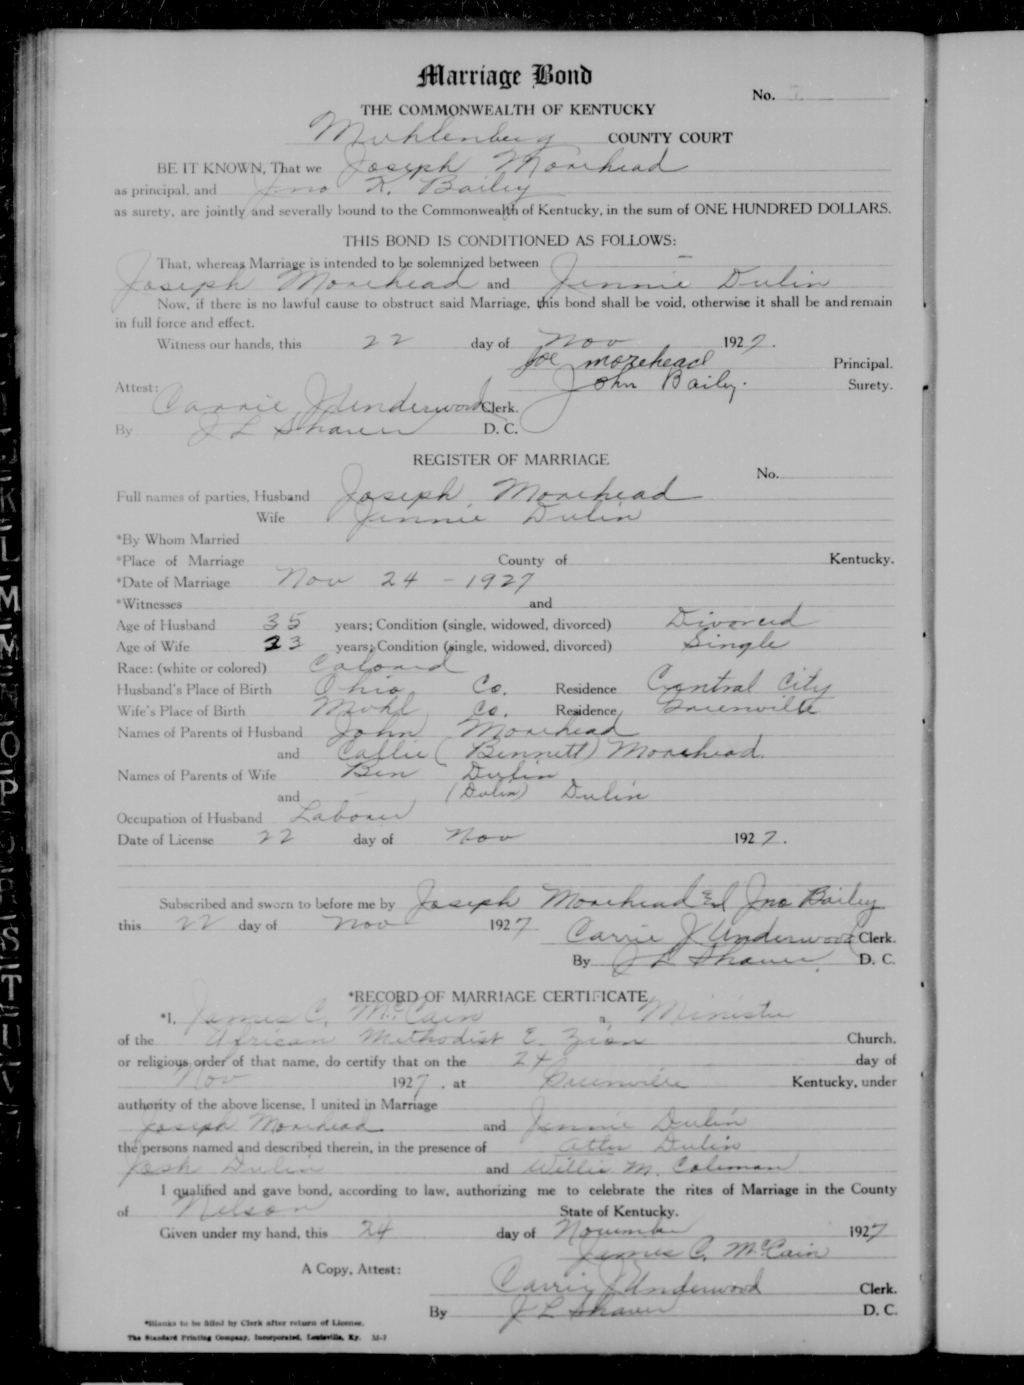 Marriage Bond
No.
THE COMMONWEALTH OF KENTUCKY
Muhlenberg COUNTY COURT
BE IT KNOWN, That we Joseph Morehead
as principal, and Jno K. Bailey
as surety, are jointly and severally bound to the Commonwealth of Kentucky, in the sum of ONE HUNDRED DOLLARS.
THIS BOND IS CONDITIONED AS FOLLOWS:
That, whereas Marriage is intended to be solemnized between
Joseph Morehead and Jennie Dulin
Now, if there is no lawful cause to obstruct said Marriage, this bond shall be void, otherwise it shall be and remain
in full force and effect.
Witness our hands, this 22 day of Nov 1927.
Joe morehead Principal.
Attest: John Baily. Surety.
Carrie J Underwood Clerk.
By J L Shaver D. C.
REGISTER OF MARRIAGE
No.
Full names of parties, Husband Joseph Morehead
Wife Jennie Dulin
*By Whom Married
*Place of Marriage County of Kentucky.
*Date of Marriage Nov 24 - 1927
*Witnesses and
Age of Husband 35 years; Condition (single, widowed, divorced) Divorced
Age of Wife 23 years; Condition (single, widowed, divorced) Single
Race: (white or colored) Colored
Husband's Place of Birth Ohio Co. Residence Central City
Wife's Place of Birth Muhl Co. Residence Greenville
Names of Parents of Husband John Morehead
and Callie (Bennett) Morehead.
Names of Parents of Wife Ben Dulin
and — (Dulin) Dulin
Occupation of Husband Laborer
Date of License 22 day of Nov 1927.
Subscribed and sworn to before me by Joseph Morehead and Jno Bailey
this 22 day of Nov 1927
Carrie J Underwood Clerk.
By J L Shaver D. C.
*RECORD OF MARRIAGE CERTIFICATE
*I, James C. McCain a Minister
of the African Methodist E. Zion Church,
or religious order of that name, do certify that on the 24 day of
Nov 1927, at Greenville Kentucky, under
authority of the above license, I united in Marriage
Joseph Morehead and Jennie Dulin
the persons named and described therein, in the presence of Dulin
Josh Dulin and Willie M. Coleman
I qualified and gave bond, according to law, authorizing me to celebrate the rites of Marriage in the County
of Nelson State of Kentucky.
Given under my hand, this 24 day of November 1927
James C. McCain
A Copy, Attest:
Carrie J Underwood Clerk.
By J L Shaver D. C.
*Blanks to be filled by Clerk after return of License.
The Standard Printing Company, Incorporated, Louisville, Ky. M-7